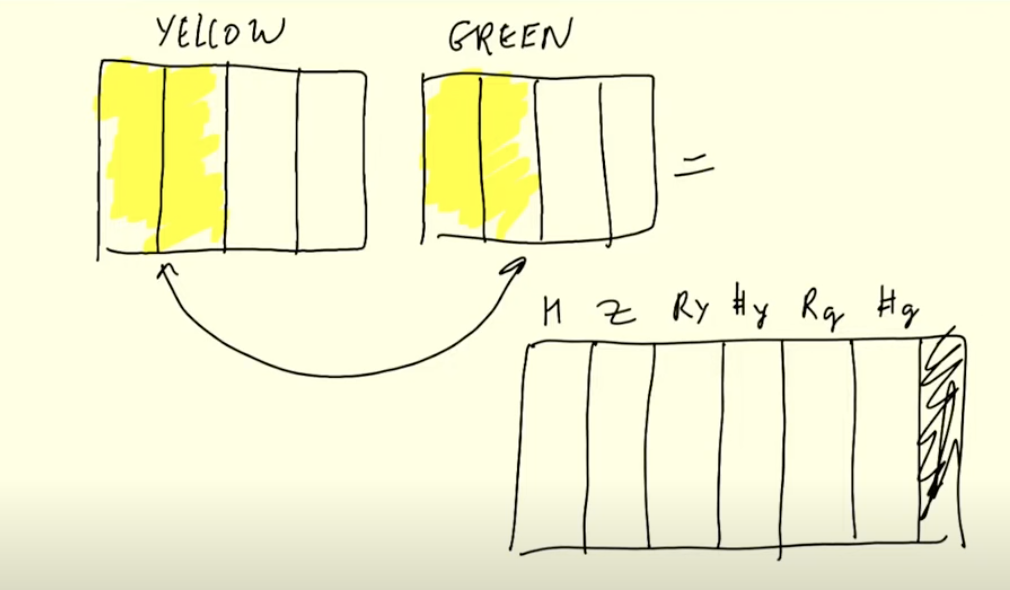 YELLOW GREEN
=
M Z Ry #y Rg #g